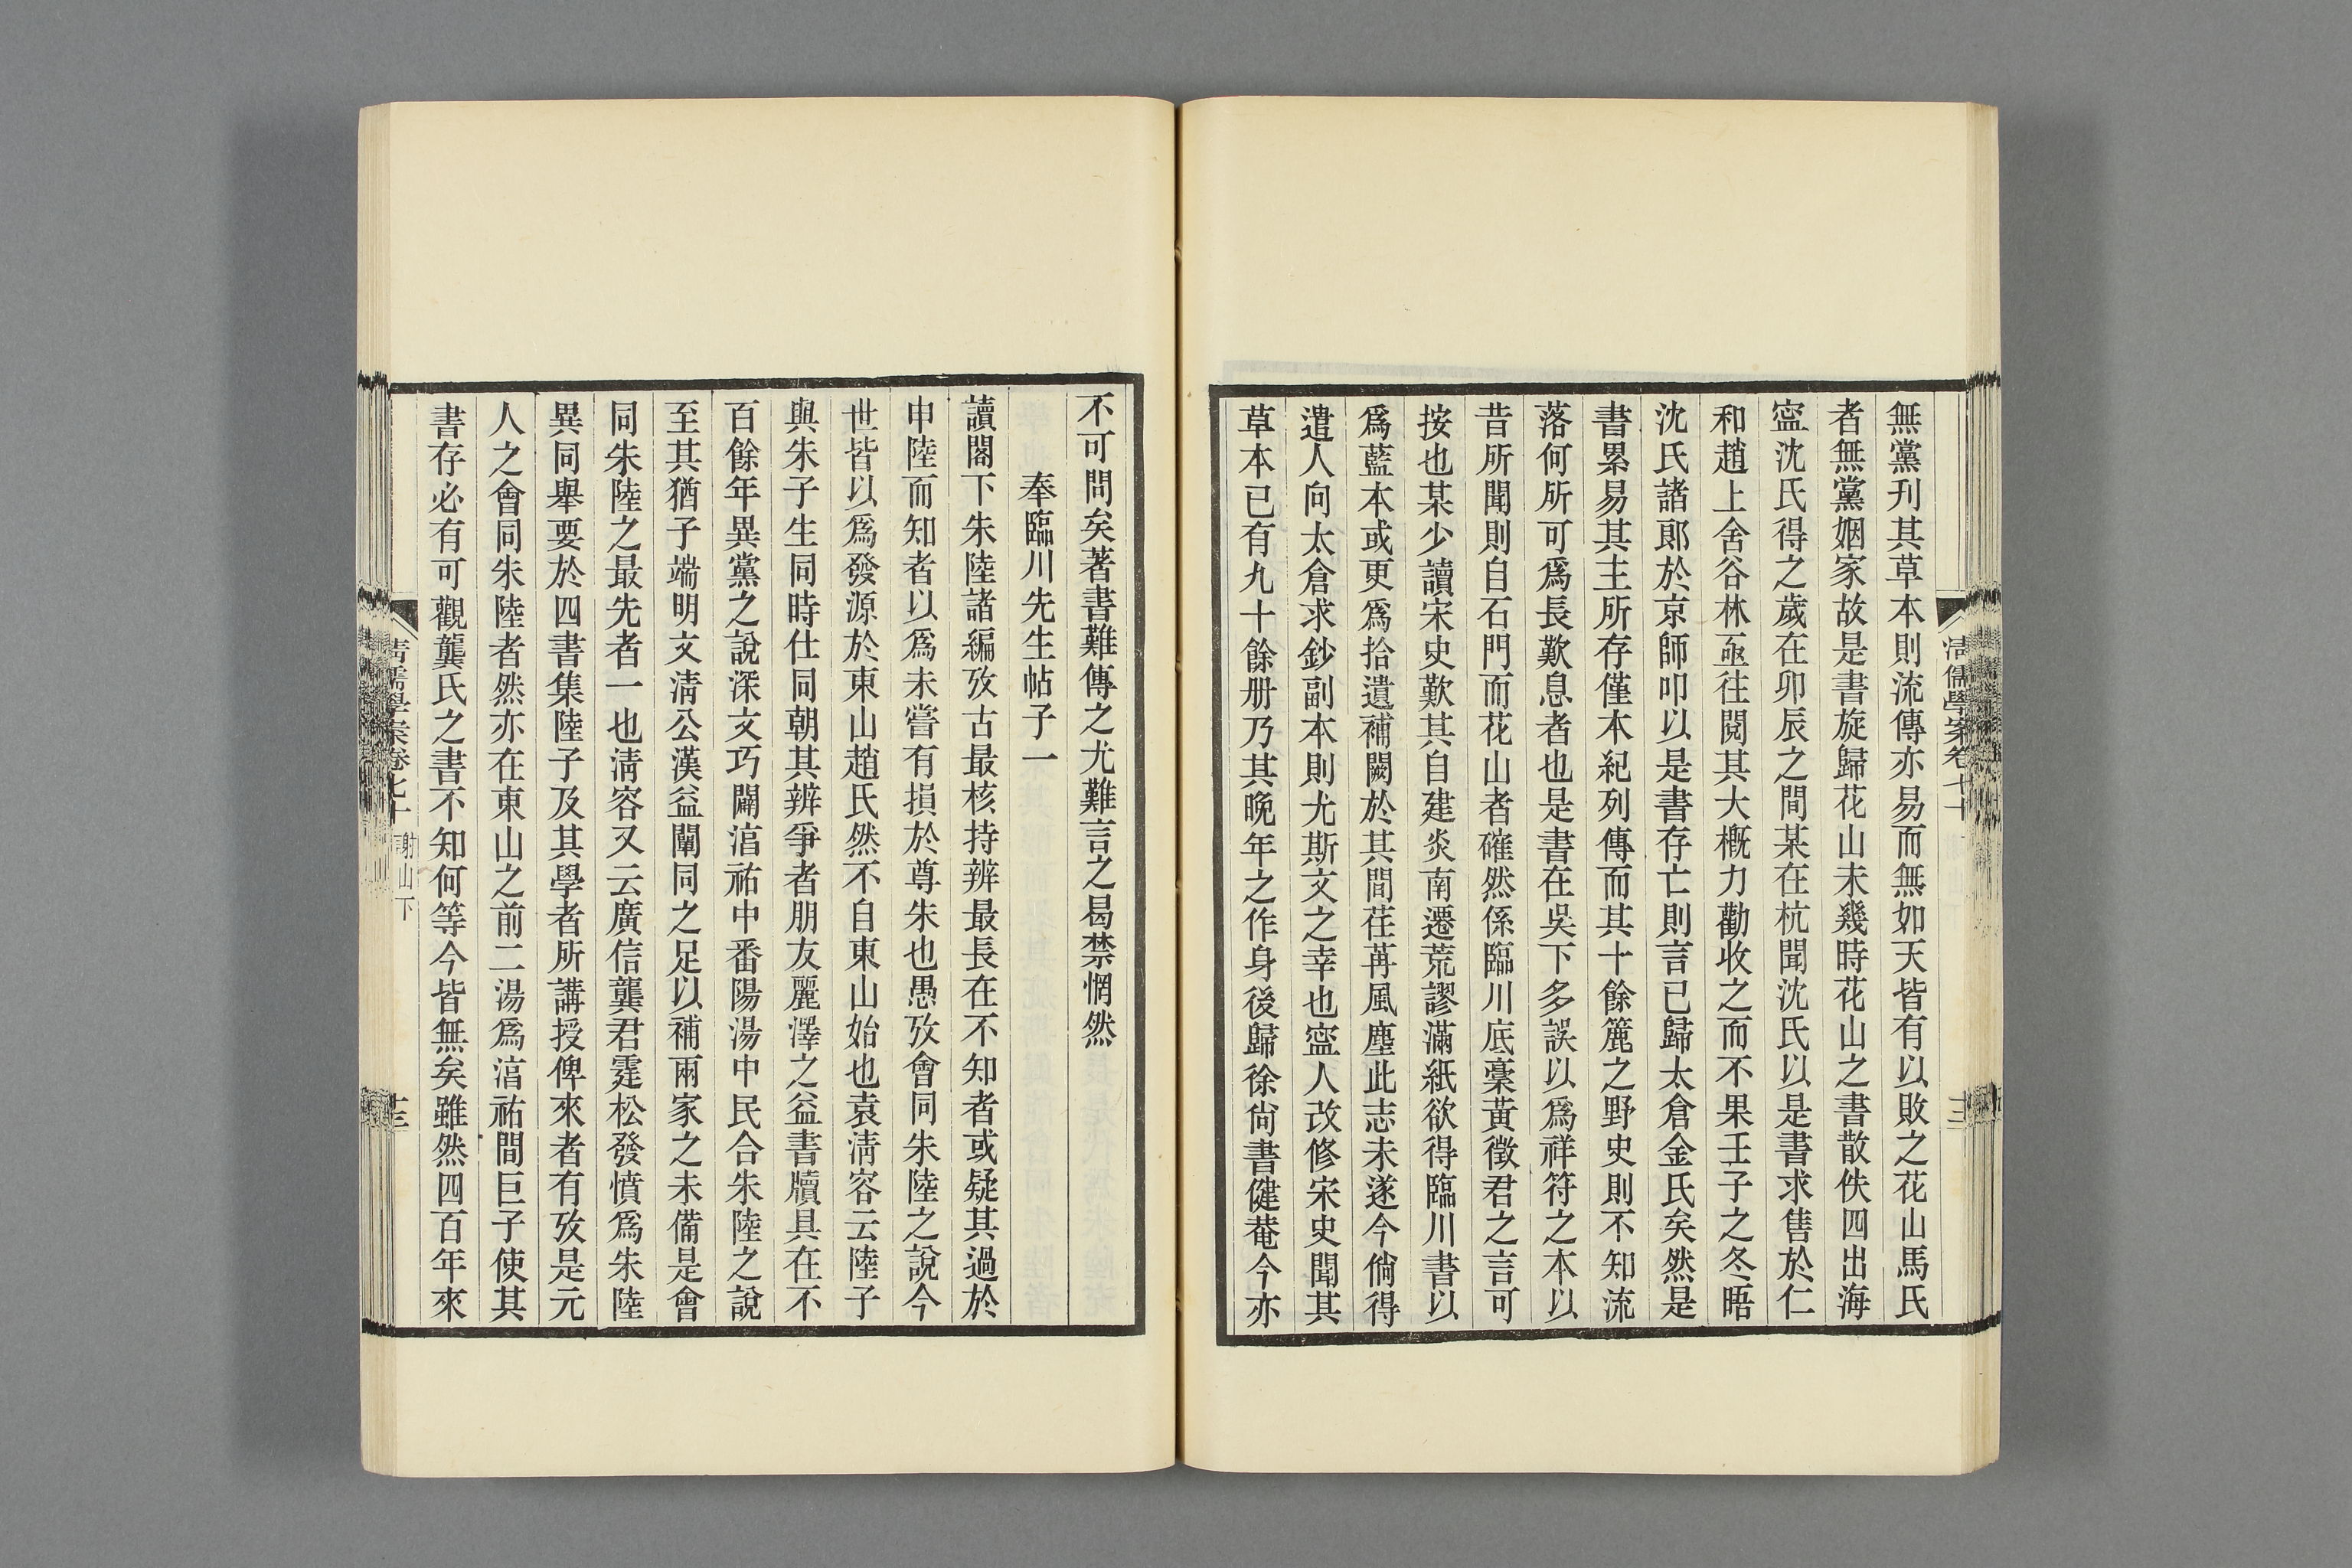 無黨刊其草本則流傳亦易而無如天皆有以敗之花山馬氏
者無黨姻家故是書旋歸花山未幾時花山之書散佚四出海
寍沈氏得之歲在卯辰之間某在杭聞沈氏以是書求售於仁
和趙上舍谷林亟往閱其大槪力勸收之而不果壬子之冬晤
沈氏諸郞於京師叩以是書存亡則言已歸太倉金氏矣然是
書累易其主所存僅本紀列傳而其十餘簏之野史則不知流
落何所可爲長歎息者也是書在吳下多誤以爲祥符之本以
昔所聞則自石門而花山者確然係臨川底稾黃徵君之言可
按也某少讀宋史歎其自建炎南遷荒謬滿紙欲得臨川書以
爲藍本或更爲拾遺補闕於其間荏苒風塵此志未遂今倘得
遣人向太倉求鈔副本則尤斯文之幸也寍人改修宋史聞其
草本已有九十餘册乃其晚年之作身後歸徐尙書健菴今亦
清儒學案卷七十
不可問矣著書難傳之尤難言之曷禁惘然
奉臨川先生帖子一
讀閣下朱陸諸編攷古最核持辨最長在不知者或疑其過於
申陸而知者以爲未嘗有損於尊朱也愚攷會同朱陸之說今
世皆以爲發源於東山趙氏然不自東山始也袁淸容云陸子
與朱子生同時仕同朝其辨爭者朋友麗澤之益書牘具在不
百餘年異黨之說深文巧闢湻祐中番陽湯中民合朱陸之說
至其猶子端明文淸公漢益闡同之足以補兩家之未備是會
同朱陸之最先者一也淸容又云廣信龔君霆松發憤爲朱陸
異同舉要於四書集陸子及其學者所講授俾來者有攷是元
人之會同朱陸者然亦在東山之前二湯爲湻祐間巨子使其
書存必有可觀龔氏之書不知何等今皆無矣雖然四百年來
清儒學案卷七十 謝山下 十三